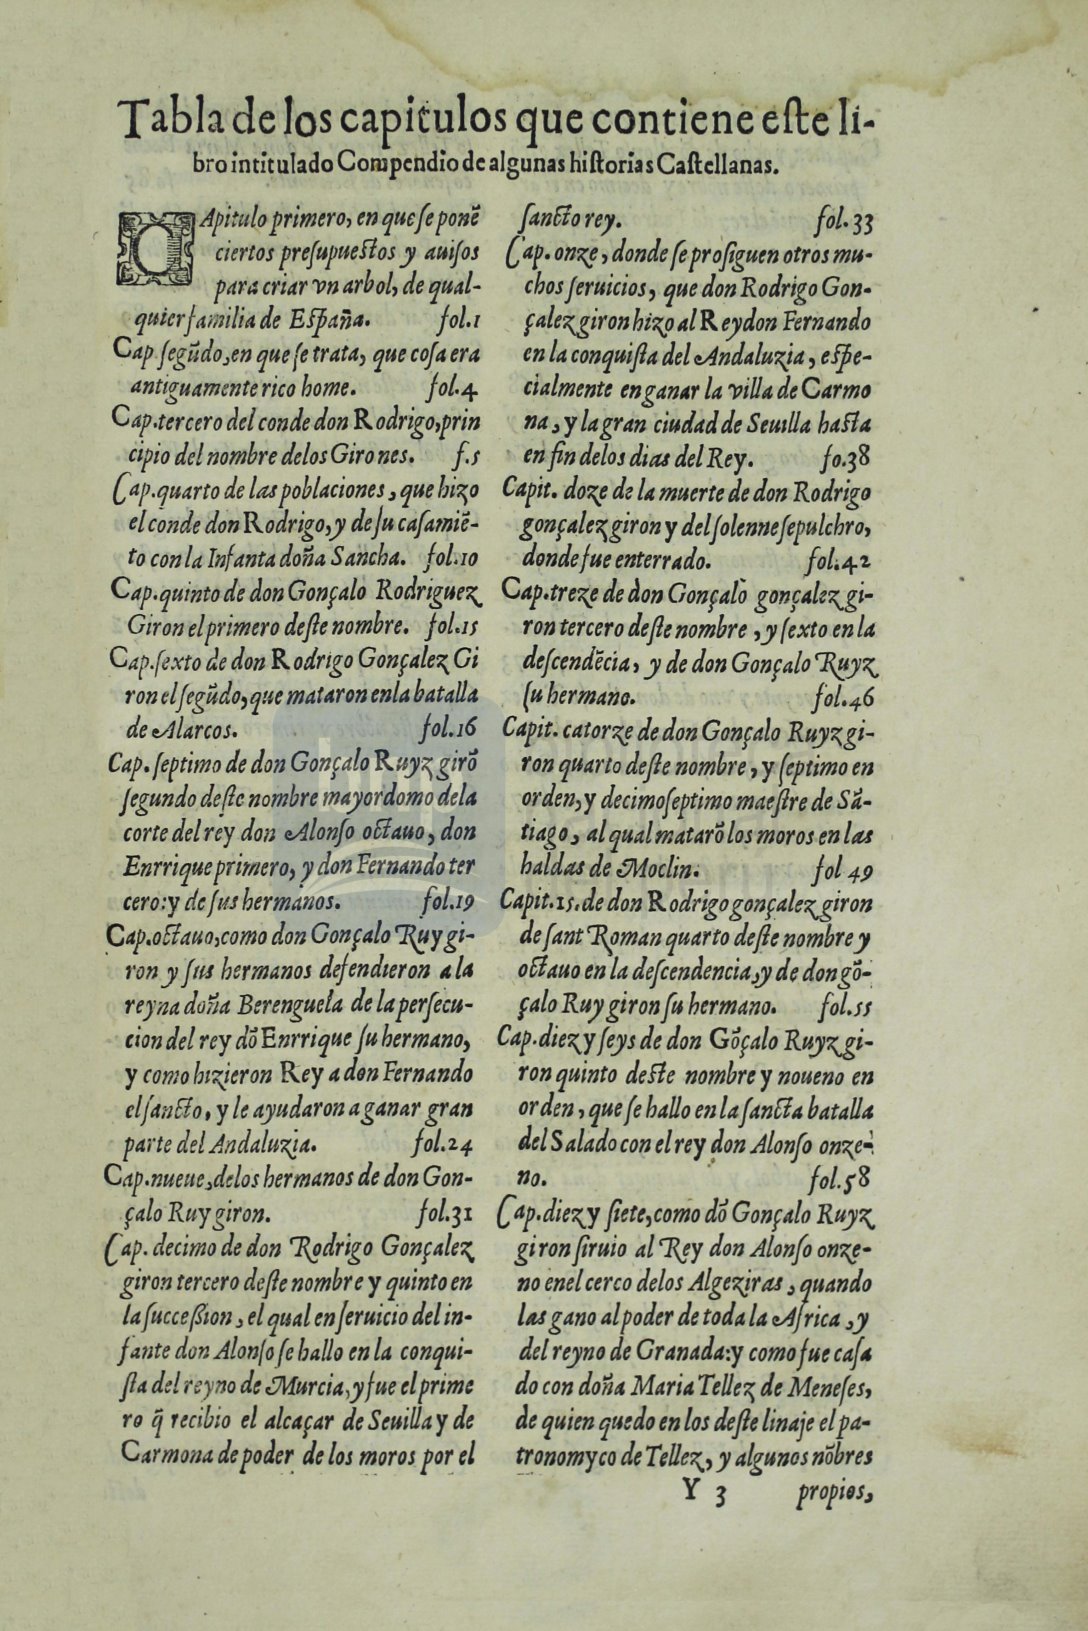 Tabla de los capitulos que contiene este li-
bro intitulado Compendio de algunas historias Castellanas.
CApitulo primero, en que se ponẽ
ciertos presupuestos y auisos
para criar vn arbol, de qual-
quier familia de España. fol.1
Cap.segũdo,en que se trata, que cosa era
antiguamente rico home. fol.4
Cap.tercero del conde don Rodrigo,prin
cipio del nombre delos Girones. f.5
Cap.quarto de las poblaciones, que hizo
el conde don Rodrigo, y de su casamiẽ-
to con la Infanta doña Sancha. fol.10
Cap.quinto de don Gonçalo Rodriguez
Giron el primero deste nombre. fol.15
Cap.sexto de don Rodrigo Gonçalez Gi
ron el segũdo,que mataron enla batalla
de Alarcos. fol.16
Cap. septimo de don Gonçalo Ruyz girõ
segundo deste nombre mayordomo dela
corte del rey don Alonso octauo, don
Enrrique primero, y don Fernando ter
cero:y de sus hermanos. fol.19
Cap.octauo,como don Gonçalo Ruy gi-
ron y sus hermanos defendieron a la
reyna doña Berenguela de la persecu-
cion del rey dõ Enrrique su hermano,
y como hizieron Rey a don Fernando
el sancto, y le ayudaron a ganar gran
parte del Andaluzia. fol.24
Cap.nueue,delos hermanos de don Gon-
çalo Ruy giron. fol.31
Cap. decimo de don Rodrigo Gonçalez
giron tercero deste nombre y quinto en
la succession, el qual en seruicio del in-
fante don Alonso se hallo en la conqui-
sta del reyno de Murcia,y fue el prime
ro q̃ recibio el alcaçar de Seuilla y de
Carmona de poder de los moros por el
sancto rey. fol.33
Cap. onze, donde se prosiguen otros mu-
chos seruicios, que don Rodrigo Gon-
çalez giron hizo al Rey don Fernando
en la conquista del Andaluzia, espe-
cialmente en ganar la villa de Carmo
na, y la gran ciudad de Seuilla hasta
en fin delos dias del Rey. fo.38
Capit. doze de la muerte de don Rodrigo
gonçalez giron y del solenne sepulchro,
donde fue enterrado. fol.42
Cap.treze de don Gonçalo gonçalez gi-
ron tercero deste nombre, y sexto en la
descendẽcia, y de don Gonçalo Ruyz
su hermano. fol.46
Capit. catorze de don Gonçalo Ruyz gi-
ron quarto deste nombre, y septimo en
orden,y decimoseptimo maestre de Sã-
tiago, al qual matarõ los moros en las
haldas de Moclin. fol 49
Capit.15.de don Rodrigo gonçalez giron
de sant Roman quarto deste nombre y
octauo en la descendencia,y de don gõ-
çalo Ruy giron su hermano. fol.55
Cap.diez y seys de don Gõçalo Ruyz gi-
ron quinto deste nombre y noueno en
orden, que se hallo en la sancta batalla
del Salado con el rey don Alonso onze-
no. fol.58
Cap.diez y siete,como dõ Gonçalo Ruyz
giron siruio al Rey don Alonso onze-
no enel cerco delos Algeziras, quando
las gano al poder de toda la Africa, y
del reyno de Granada:y como fue casa
do con doña Maria Tellez de Meneses,
de quien quedo en los deste linaje el pa-
tronomyco de Tellez, y algunos nõbres
Y 3 propios,